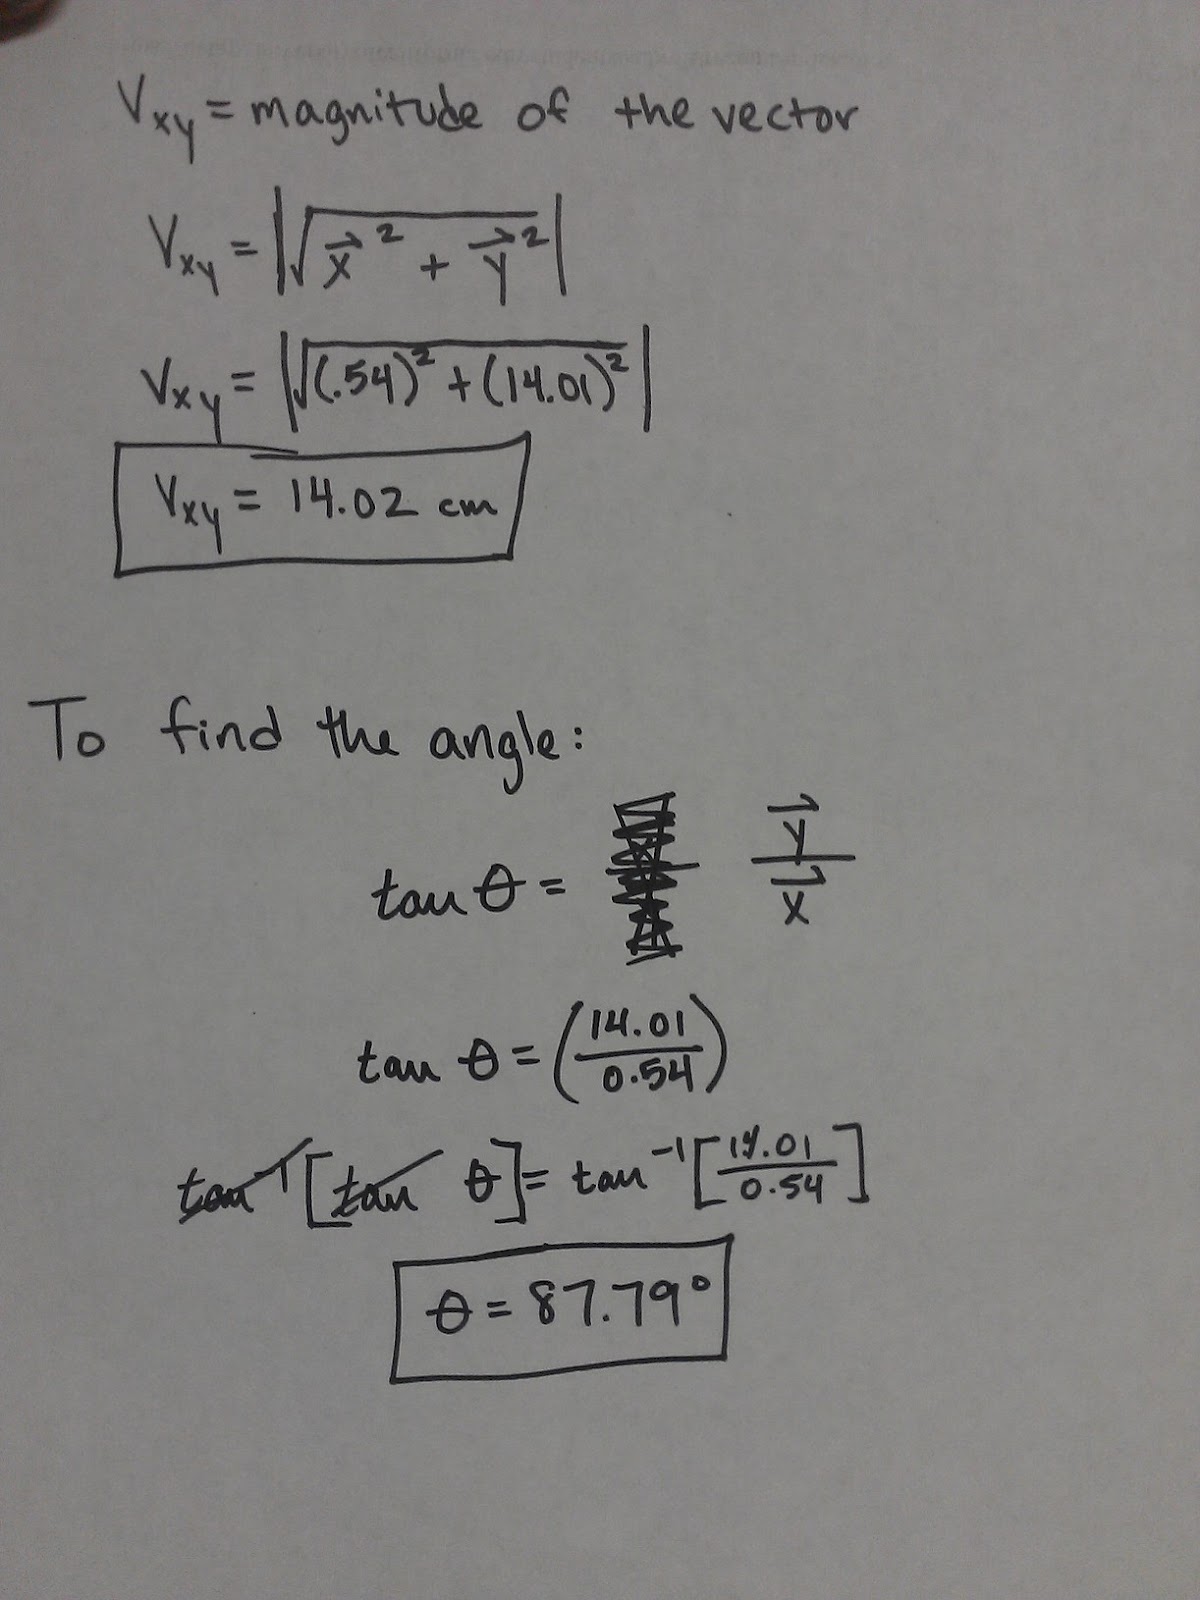 Vxy = magnitude of the vector
Vxy = |√x⃗² + y⃗²|
Vxy = |√(.54)² + (14.01)²|
Vxy = 14.02 cm
To find the angle:
tan θ = y⃗/x⃗
tan θ = (14.01/0.54)
tan⁻¹[tan θ] = tan⁻¹[14.01/0.54]
θ = 87.79°